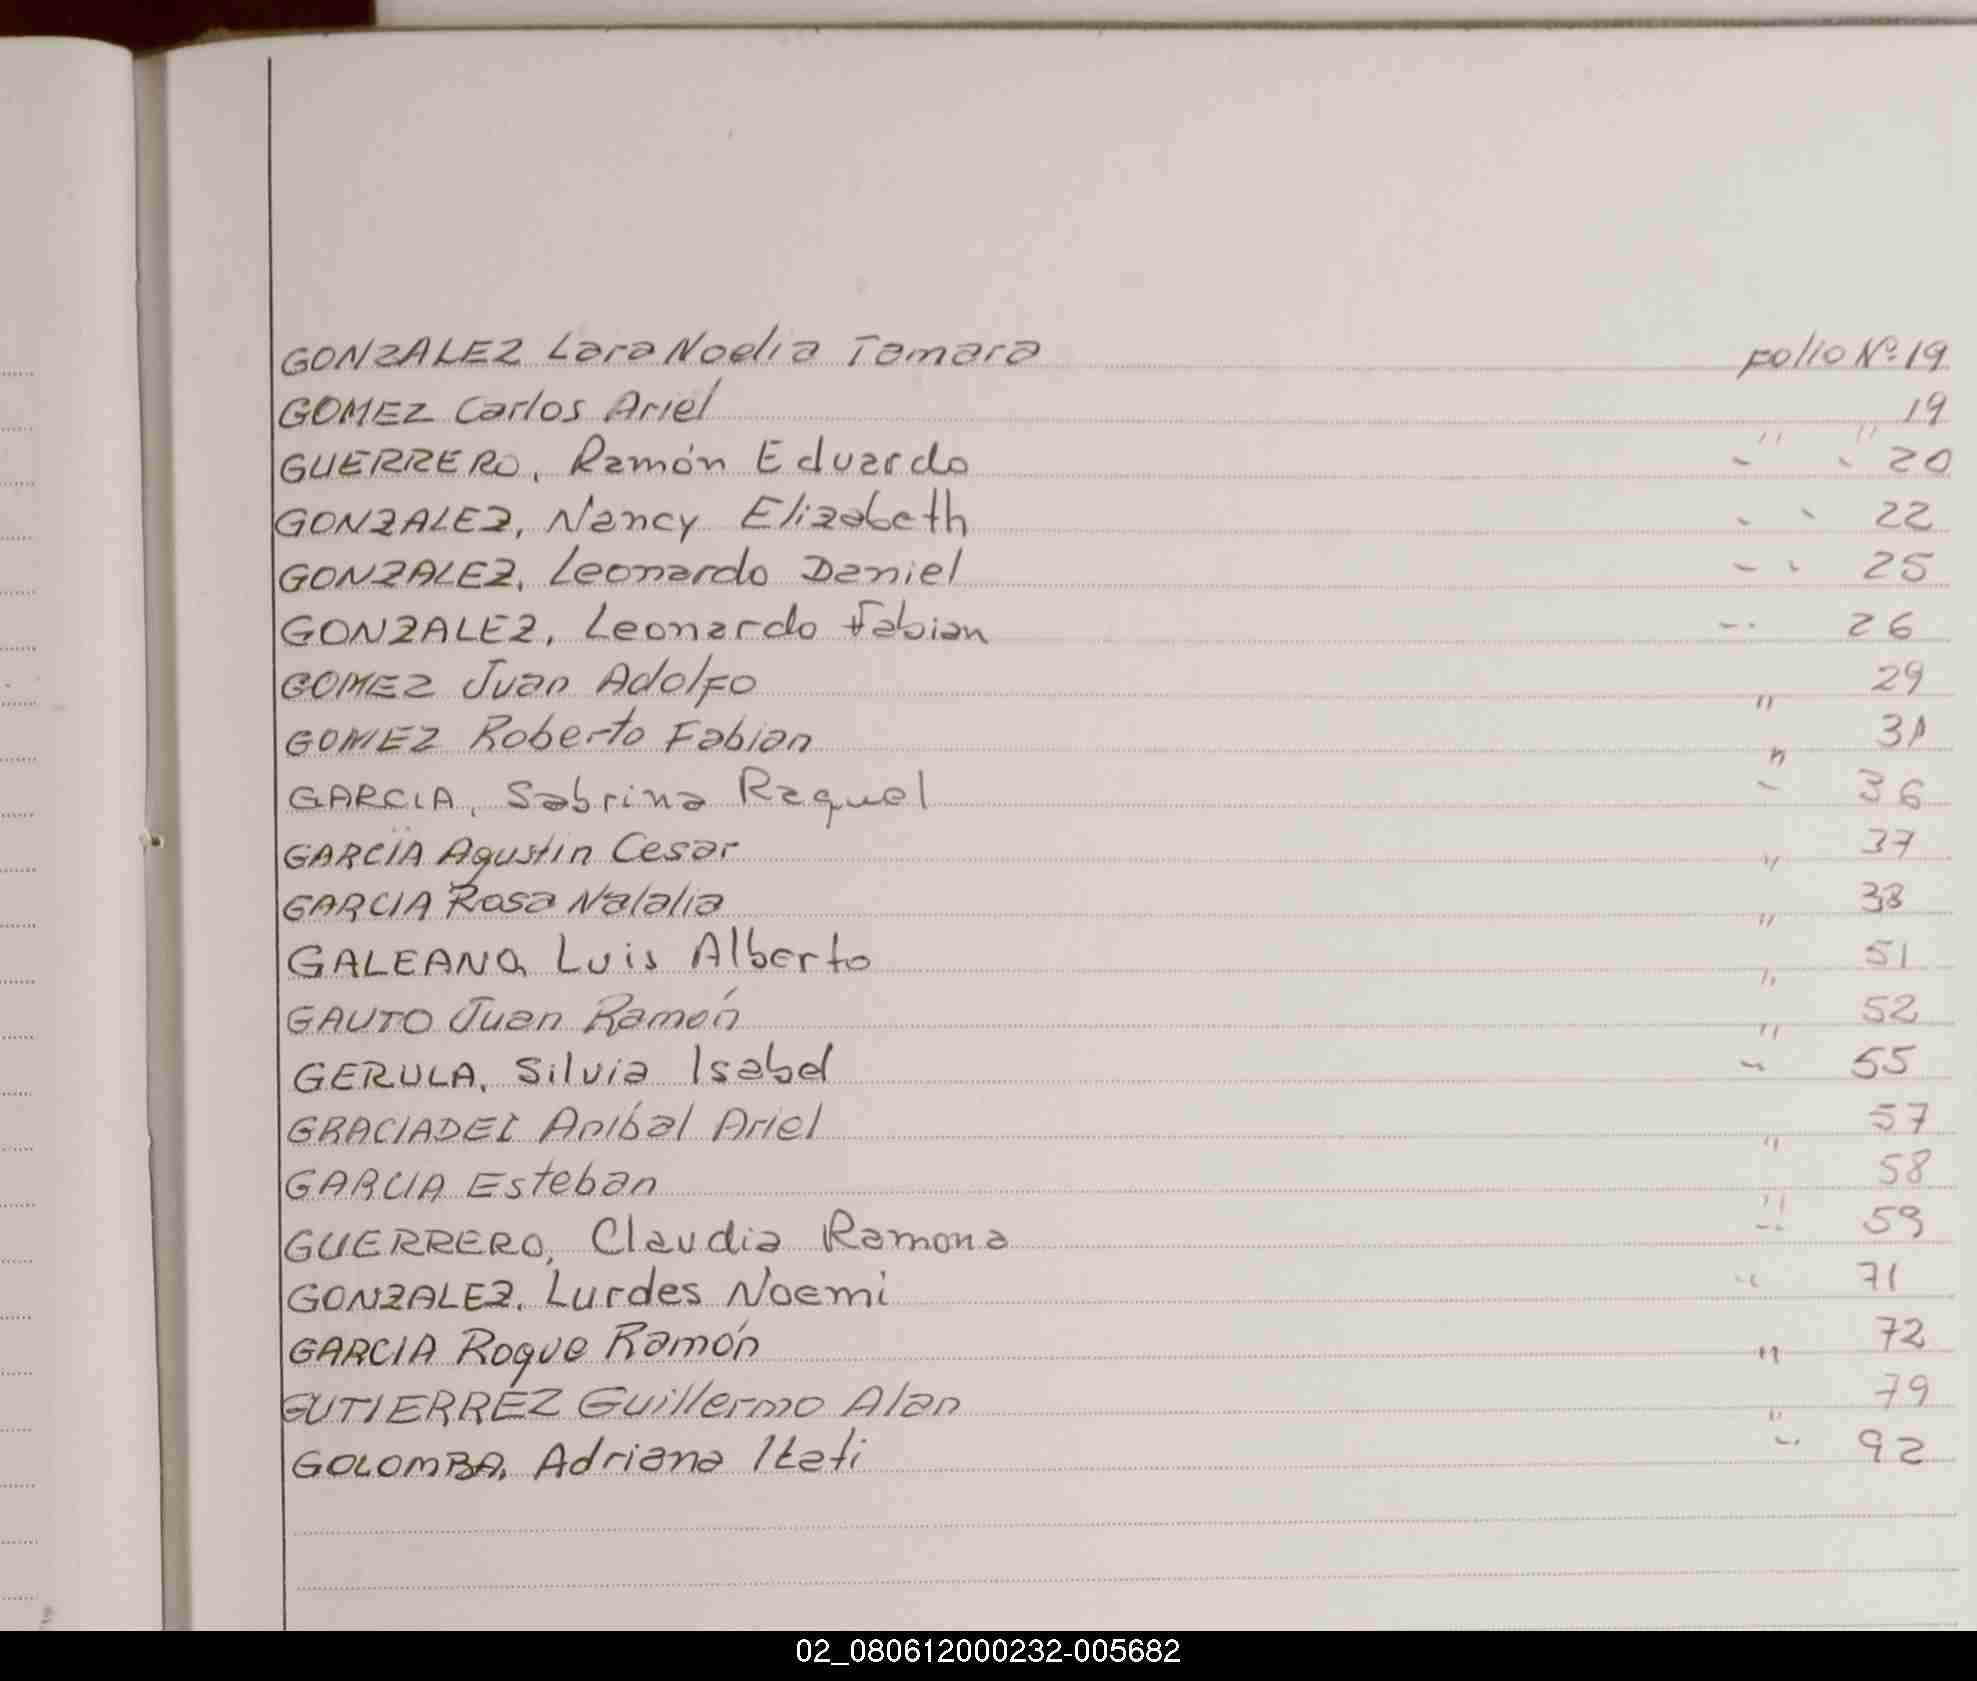 GONZALEZ Lara Noelia Tamara folio Nº 19
GOMEZ Carlos Ariel " " 19
GUERRERO, Ramón Eduardo " " 20
GONZALEZ, Nancy Elizabeth " " 22
GONZALEZ, Leonardo Daniel " " 25
GONZALEZ, Leonardo Fabian " 26
GOMEZ Juan Adolfo " 29
GOMEZ Roberto Fabian " 31
GARCIA, Sabrina Raquel " 36
GARCÍA Agustin Cesar " 37
GARCIA Rosa Natalia " 38
GALEANO, Luis Alberto " 51
GAUTO Juan Ramón " 52
GERULA, Silvia Isabel " 55
GRACIADEI Aníbal Ariel " 57
GARCIA Esteban " 58
GUERRERO, Claudia Ramona " 59
GONZALEZ, Lurdes Noemi " 71
GARCIA Roque Ramón " 72
GUTIERREZ Guillermo Alan " 79
GOLOMBA, Adriana Itati " 92
02_080612000232-005682